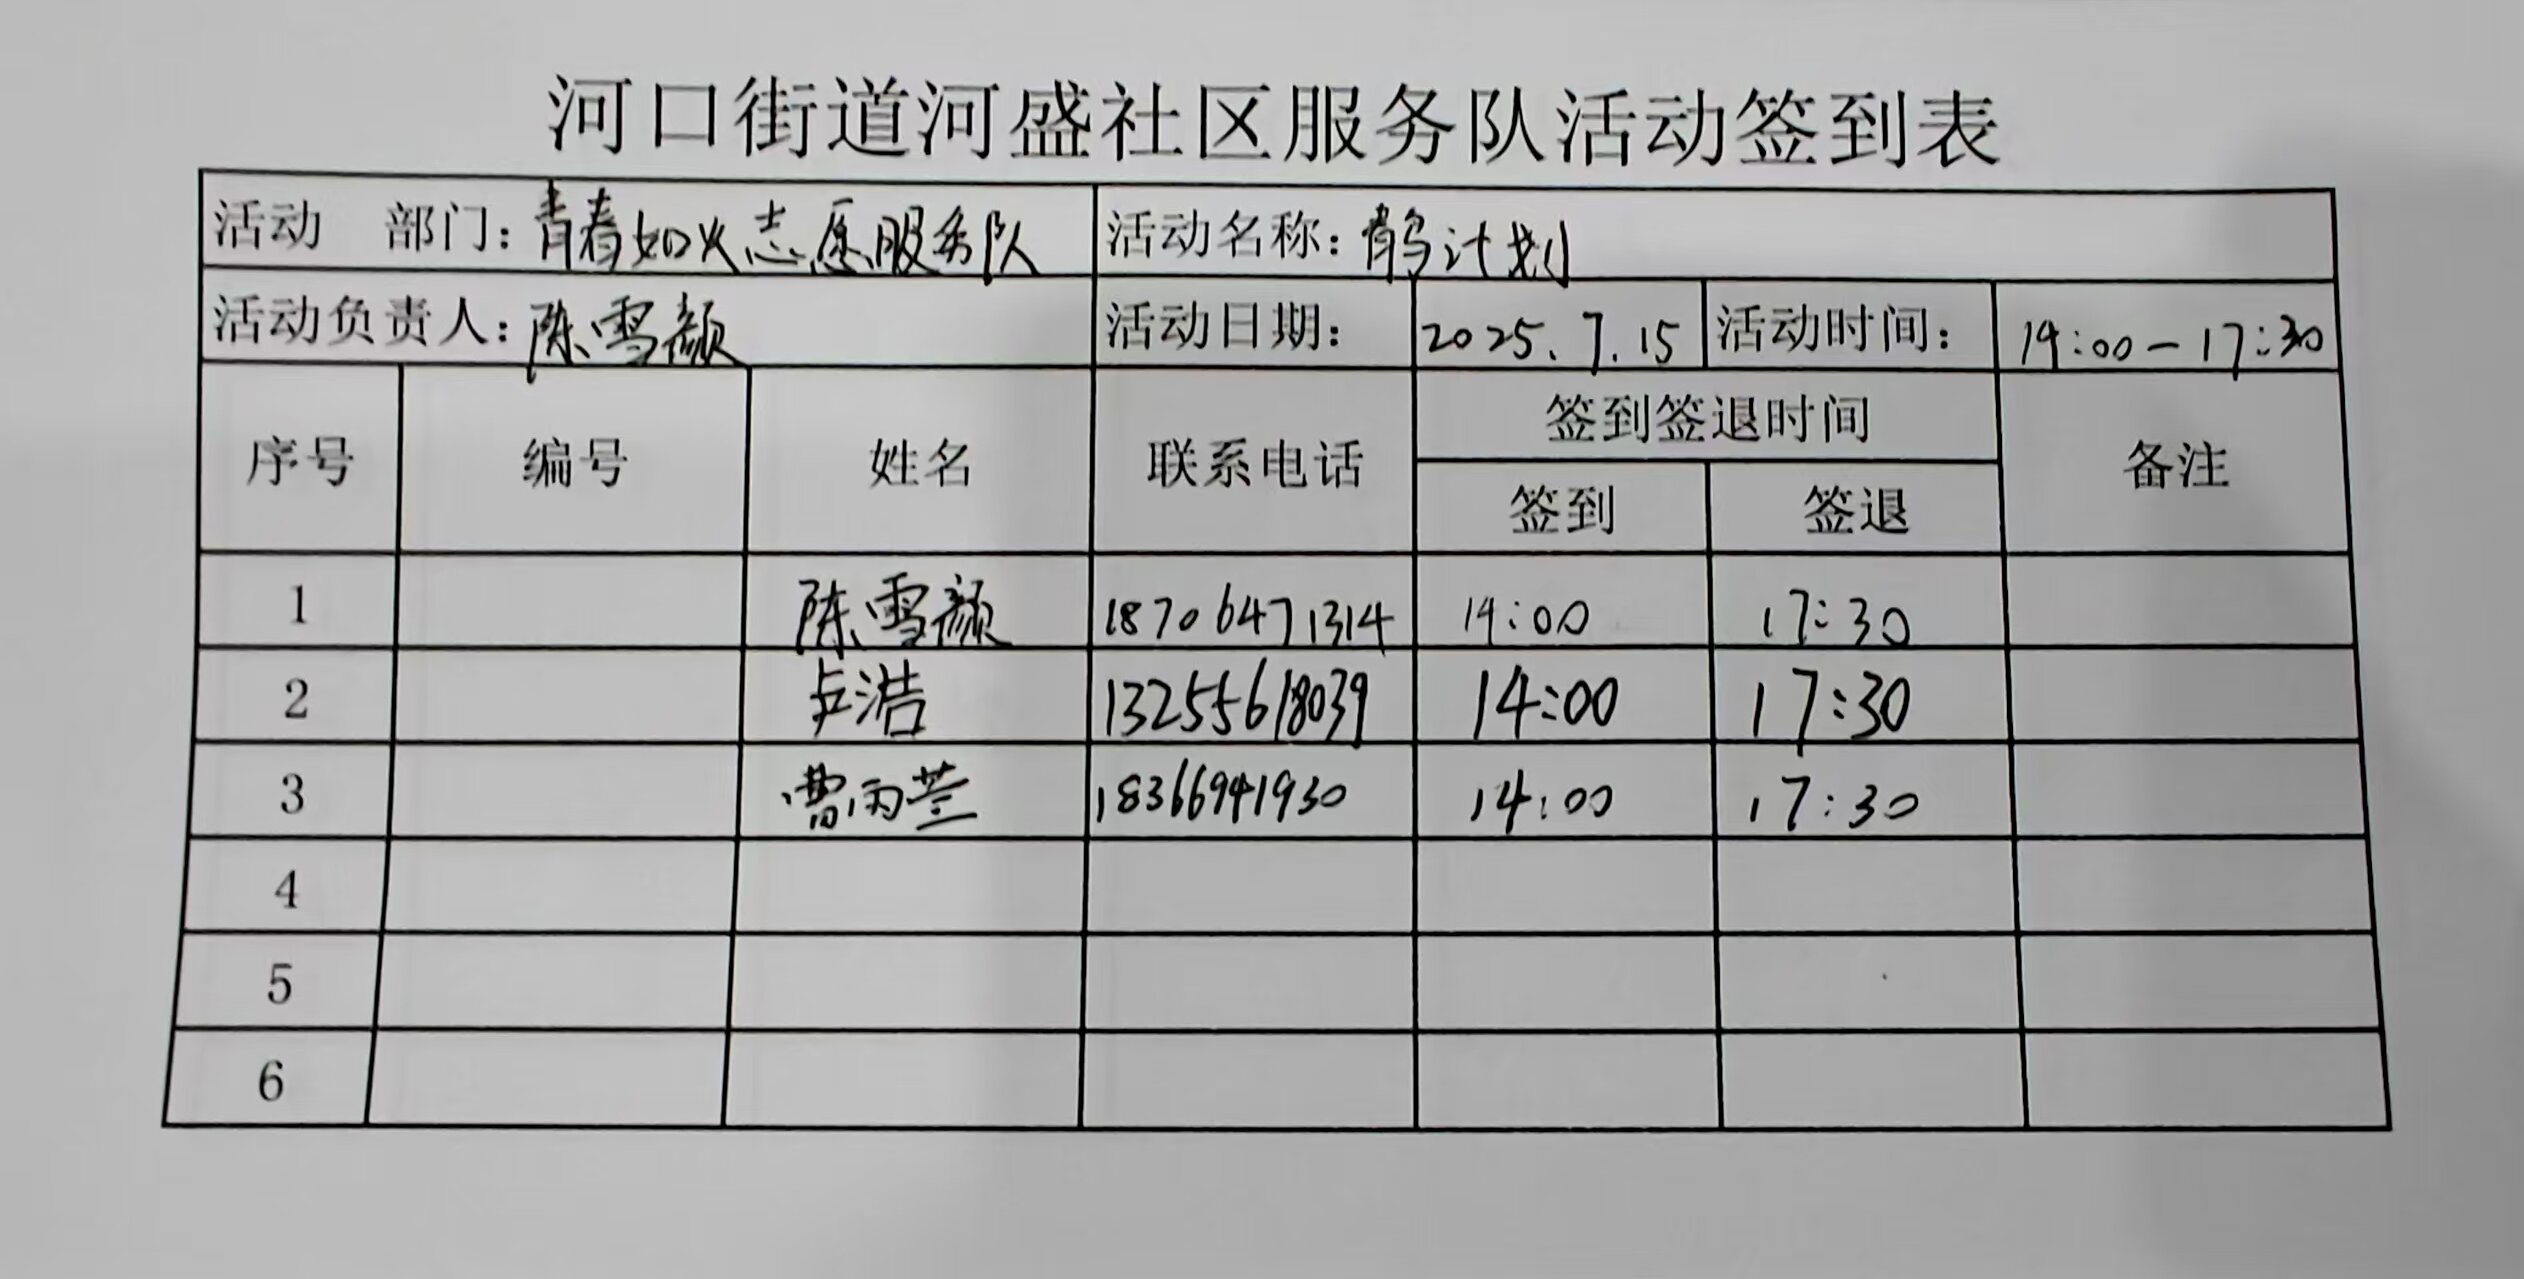 河口街道河盛社区服务队活动签到表
活动 部门：青春如火志愿服务队 活动名称：青鸟计划
活动负责人：陈雪颜 活动日期： 2025.7.15 活动时间： 14:00-17:30
序号 编号 姓名 联系电话 签到签退时间 备注
签到 签退
1 陈雪颜 18706471314 14:00 17:30
2 卢浩 13255618039 14:00 17:30
3 曹丙萱 18366941930 14:00 17:30
4
5
6